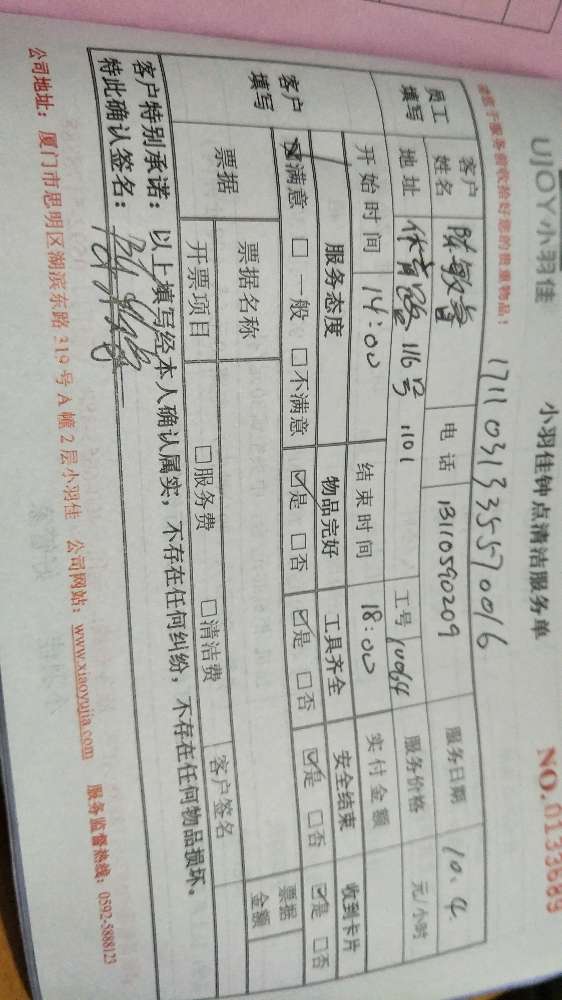 UJOY小羽佳
小羽佳钟点清洁服务单
NO.0133689
请您于服务前收拾好您的贵重物品!
员工填写
客户姓名
电话 13110590209
服务日期 10.4
地址 体育路116号 1101
工号 10064
服务价格 元/小时
开始时间 14:00
结束时间 18:00
实付金额
客户填写
服务态度 物品完好 工具齐全 安全结束 收到卡片
☑满意 □一般 □不满意 ☑是 □否 ☑是 □否 ☑是 □否 ☑是 □否
票据
票据名称
客户签名
票据金额
开票项目 □服务费 □清洁费
客户特别承诺:以上填写经本人确认属实,不存在任何纠纷,不存在任何物品损坏。
特此确认签名:
公司地址:厦门市思明区湖滨东路319号A幢2层小羽佳 公司网站:www.xiaoyujia.com 服务监督热线:0592-5888123